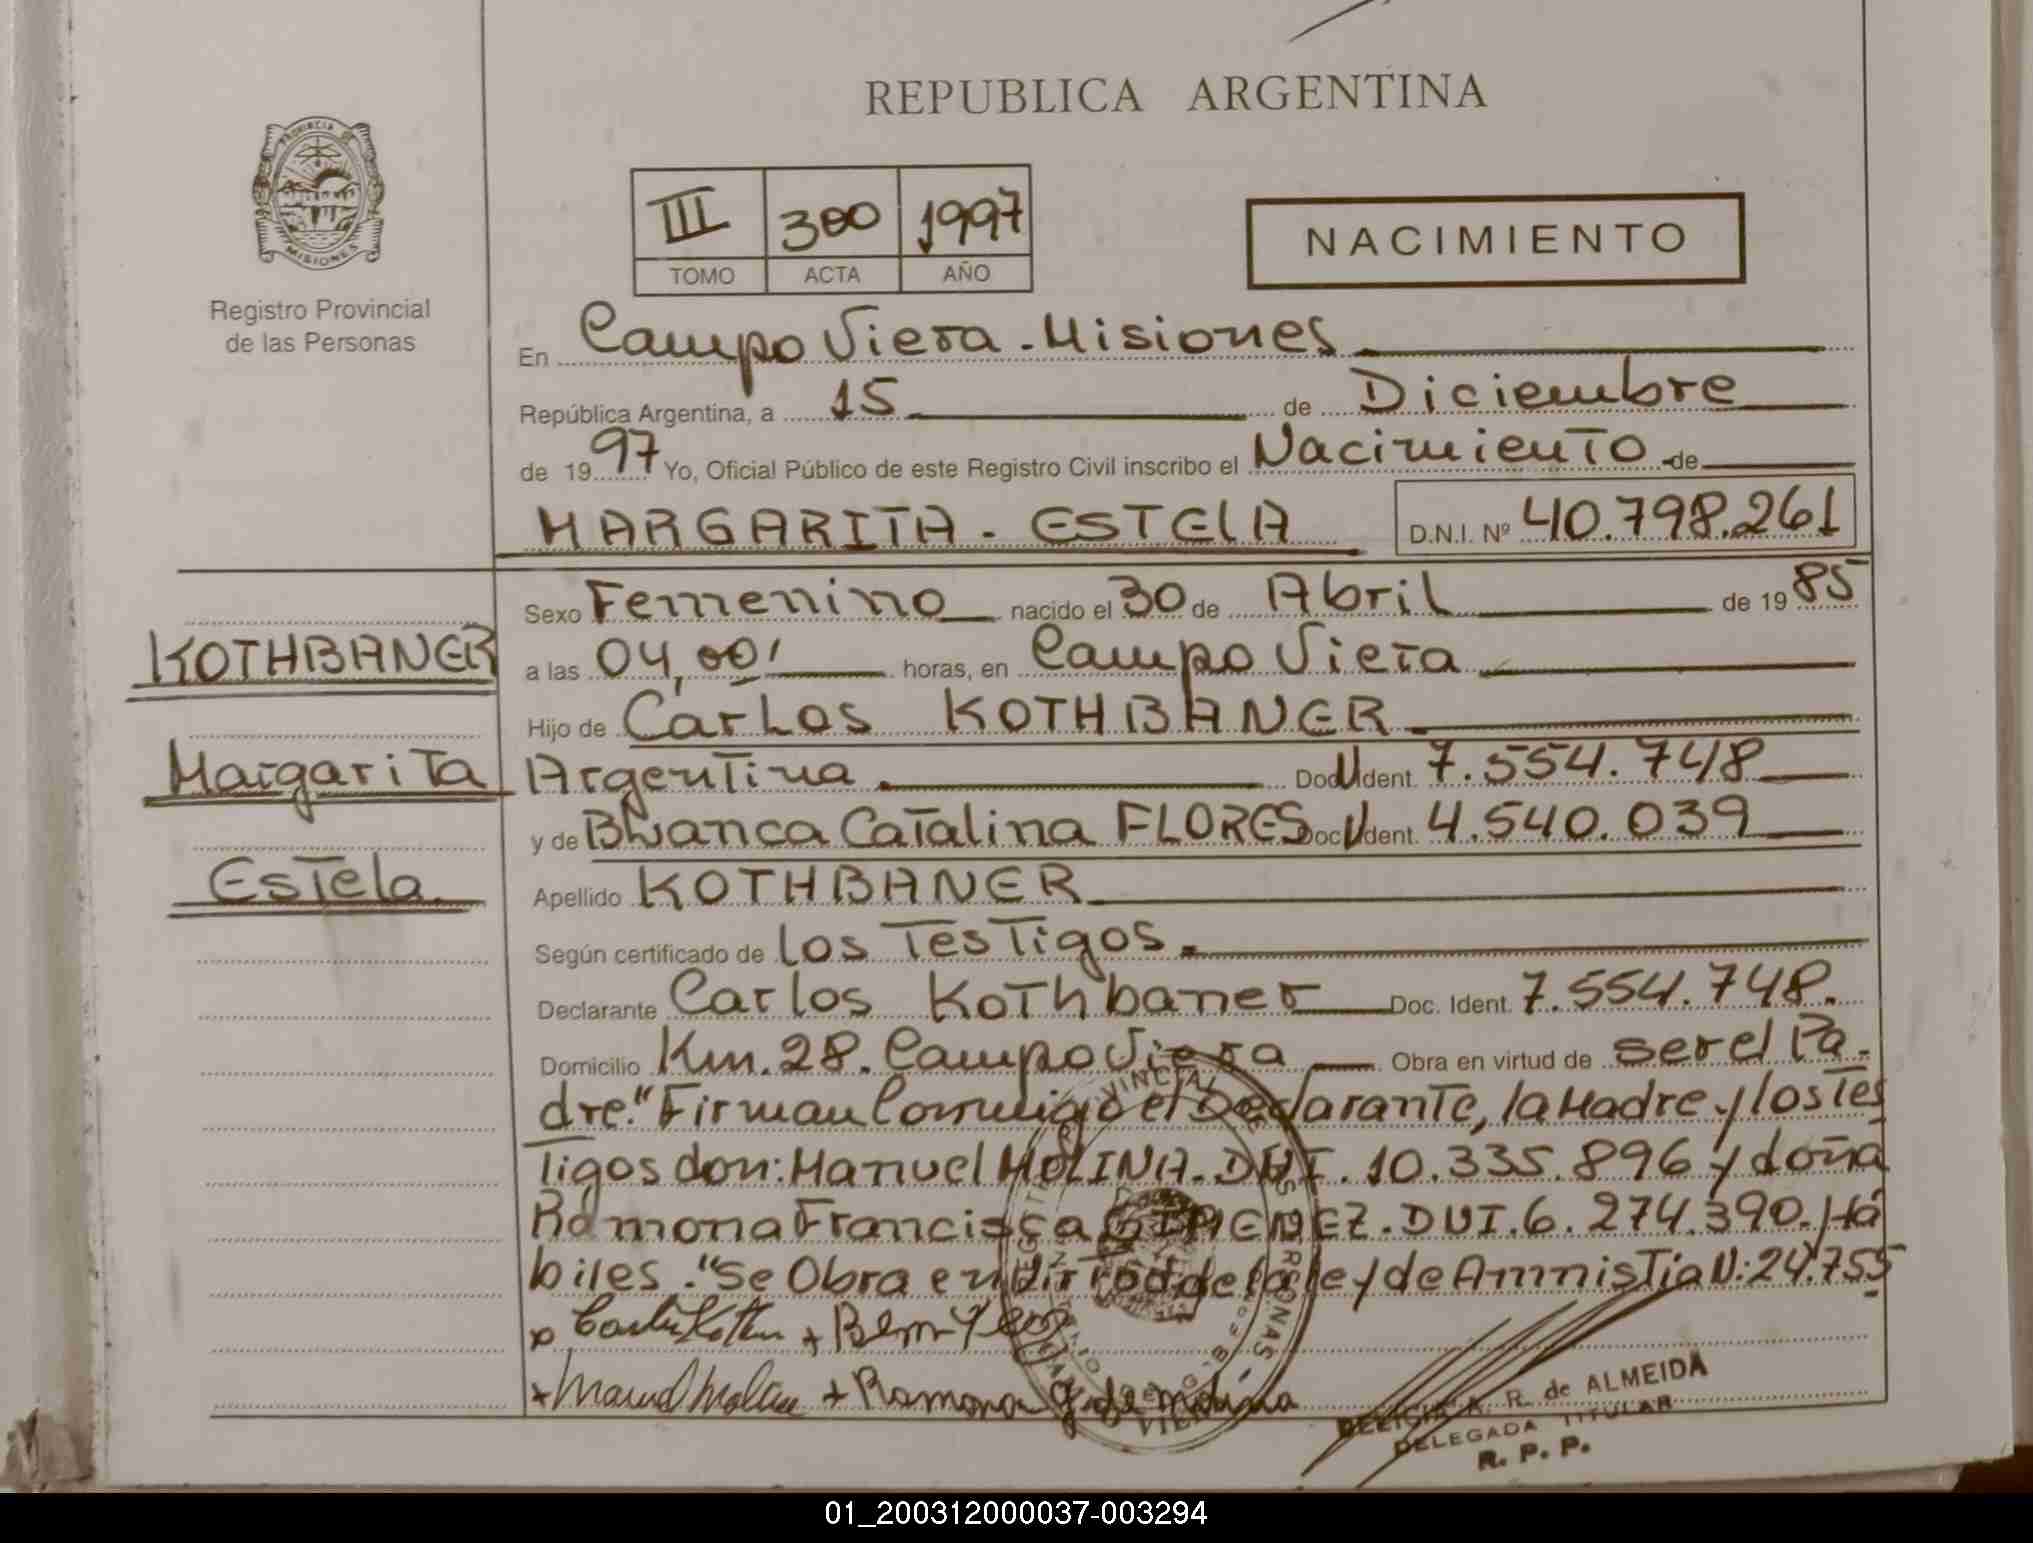 REPUBLICA ARGENTINA
PROVINCIA DE
MISIONES
Registro Provincial
de las Personas
III 300 1997
TOMO ACTA AÑO
NACIMIENTO
En Campo Viera - Misiones
República Argentina, a 15 de Diciembre
de 1997 Yo, Oficial Público de este Registro Civil inscribo el Nacimiento de
MARGARITA - ESTElA D.N.I. Nº 40.798.261
KOTHBANER
Margarita
Estela
Sexo Femenino nacido el 30 de Abril de 1985
a las 04,00' horas, en Campo Viera
Hijo de Carlos KOTHBANER
Argentina Doc. Ident. 7.554.748
y de Blanca Catalina FLORES Doc. Ident. 4.540.039
Apellido KOTHBANER
Según certificado de los Testigos.
Declarante Carlos Kothbaner Doc. Ident. 7.554.748.
Domicilio Km. 28. Campo Viera Obra en virtud de ser el Pa-
dre." Firman Conmigo el Declarante, la Madre y los Tes
Tigos don: Manuel MOLINA. DNI. 10.335.896 y doña
Ramona Francisca GIMENEZ. DNI. 6.274.390. Há
biles. "Se Obra en Virtud de la ley de Amnistia N: 24.755
Manuel Molina + Ramona g. de molina
DELICIA A. R. de ALMEIDA
DELEGADA TITULAR
R. P. P.
01_200312000037-003294